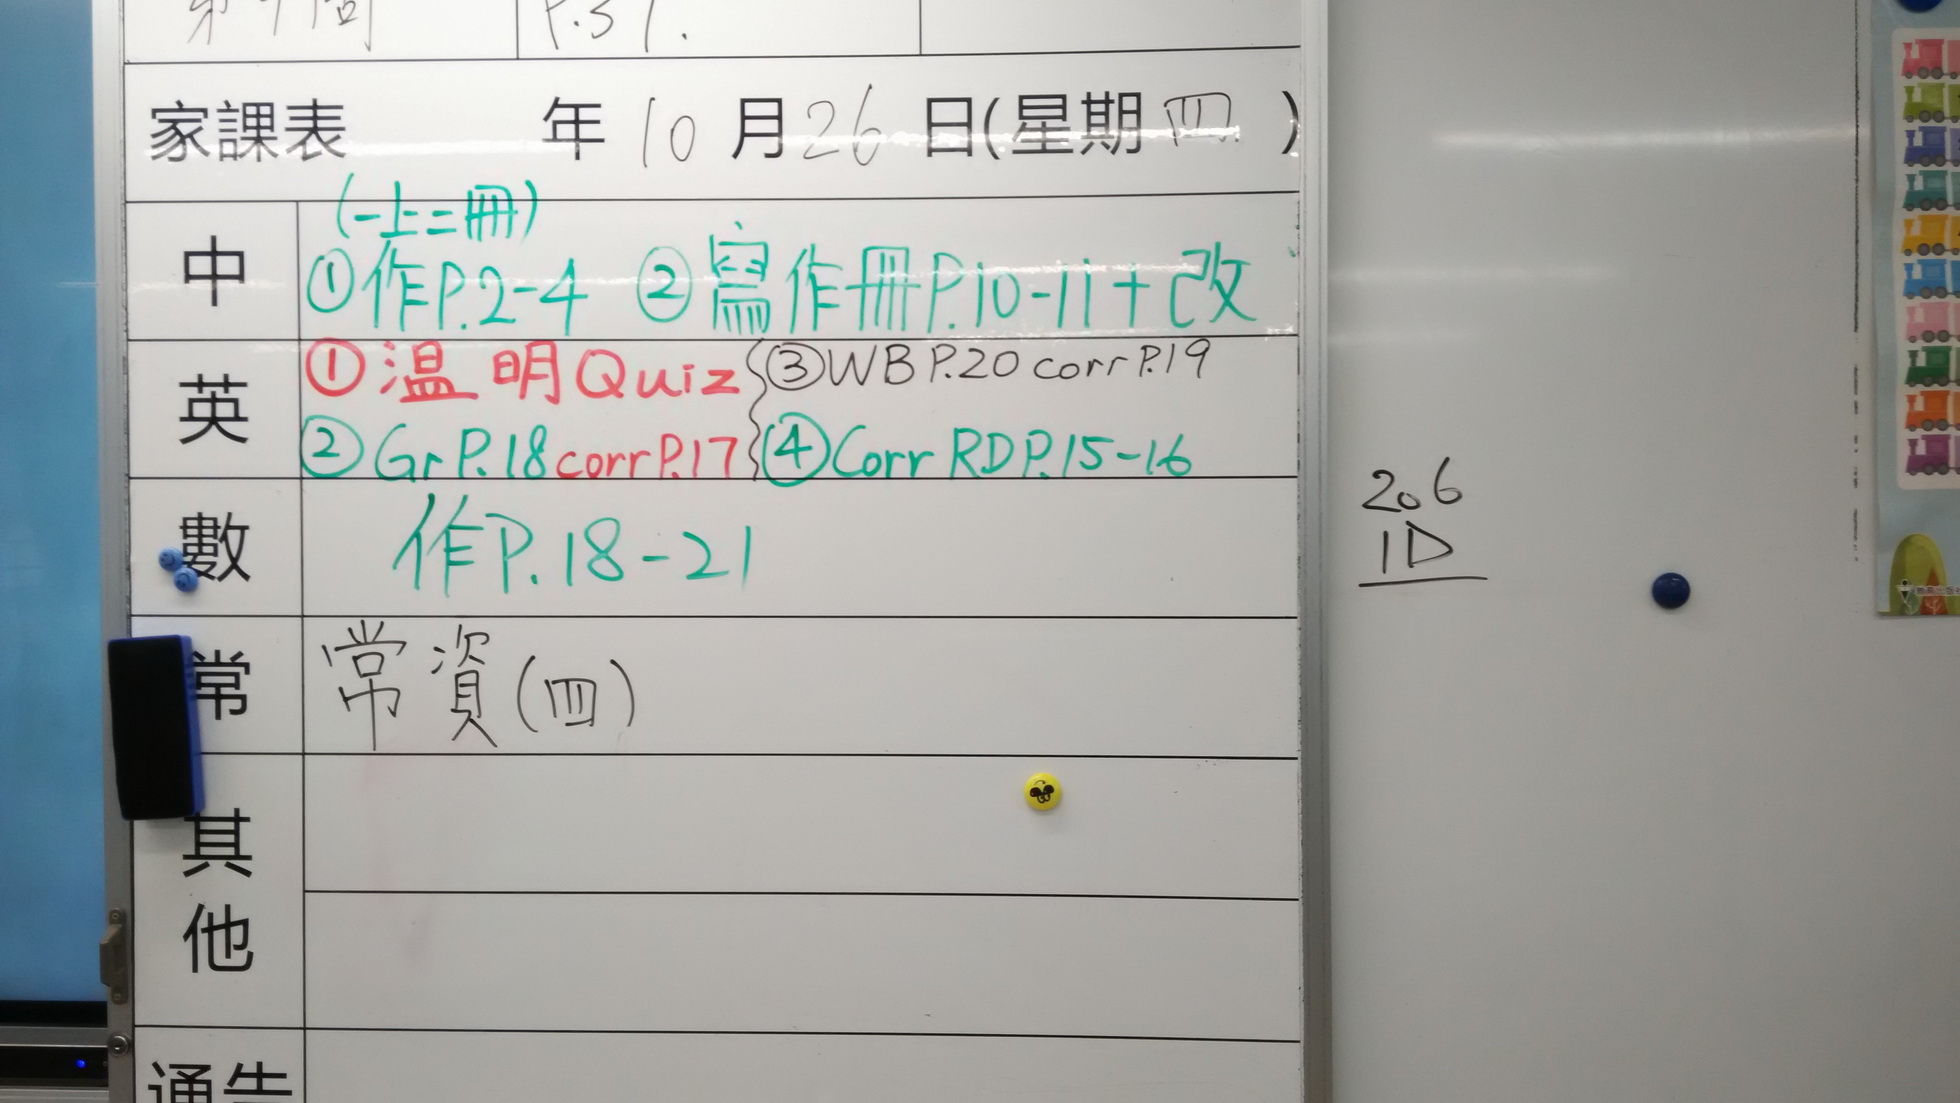 第 周 P.37.
家課表 年 10 月 26 日(星期 四 )
中
(一上二冊)
①作P.2-4 ②寫作冊P.10-11+改
英
①溫 明Quiz ③WB P.20 corr P.19
②Gr P.18 corr P.17 ④Corr RD P.15-16
數
作P.18-21
常
常資(四)
其
他
通告
206
1D